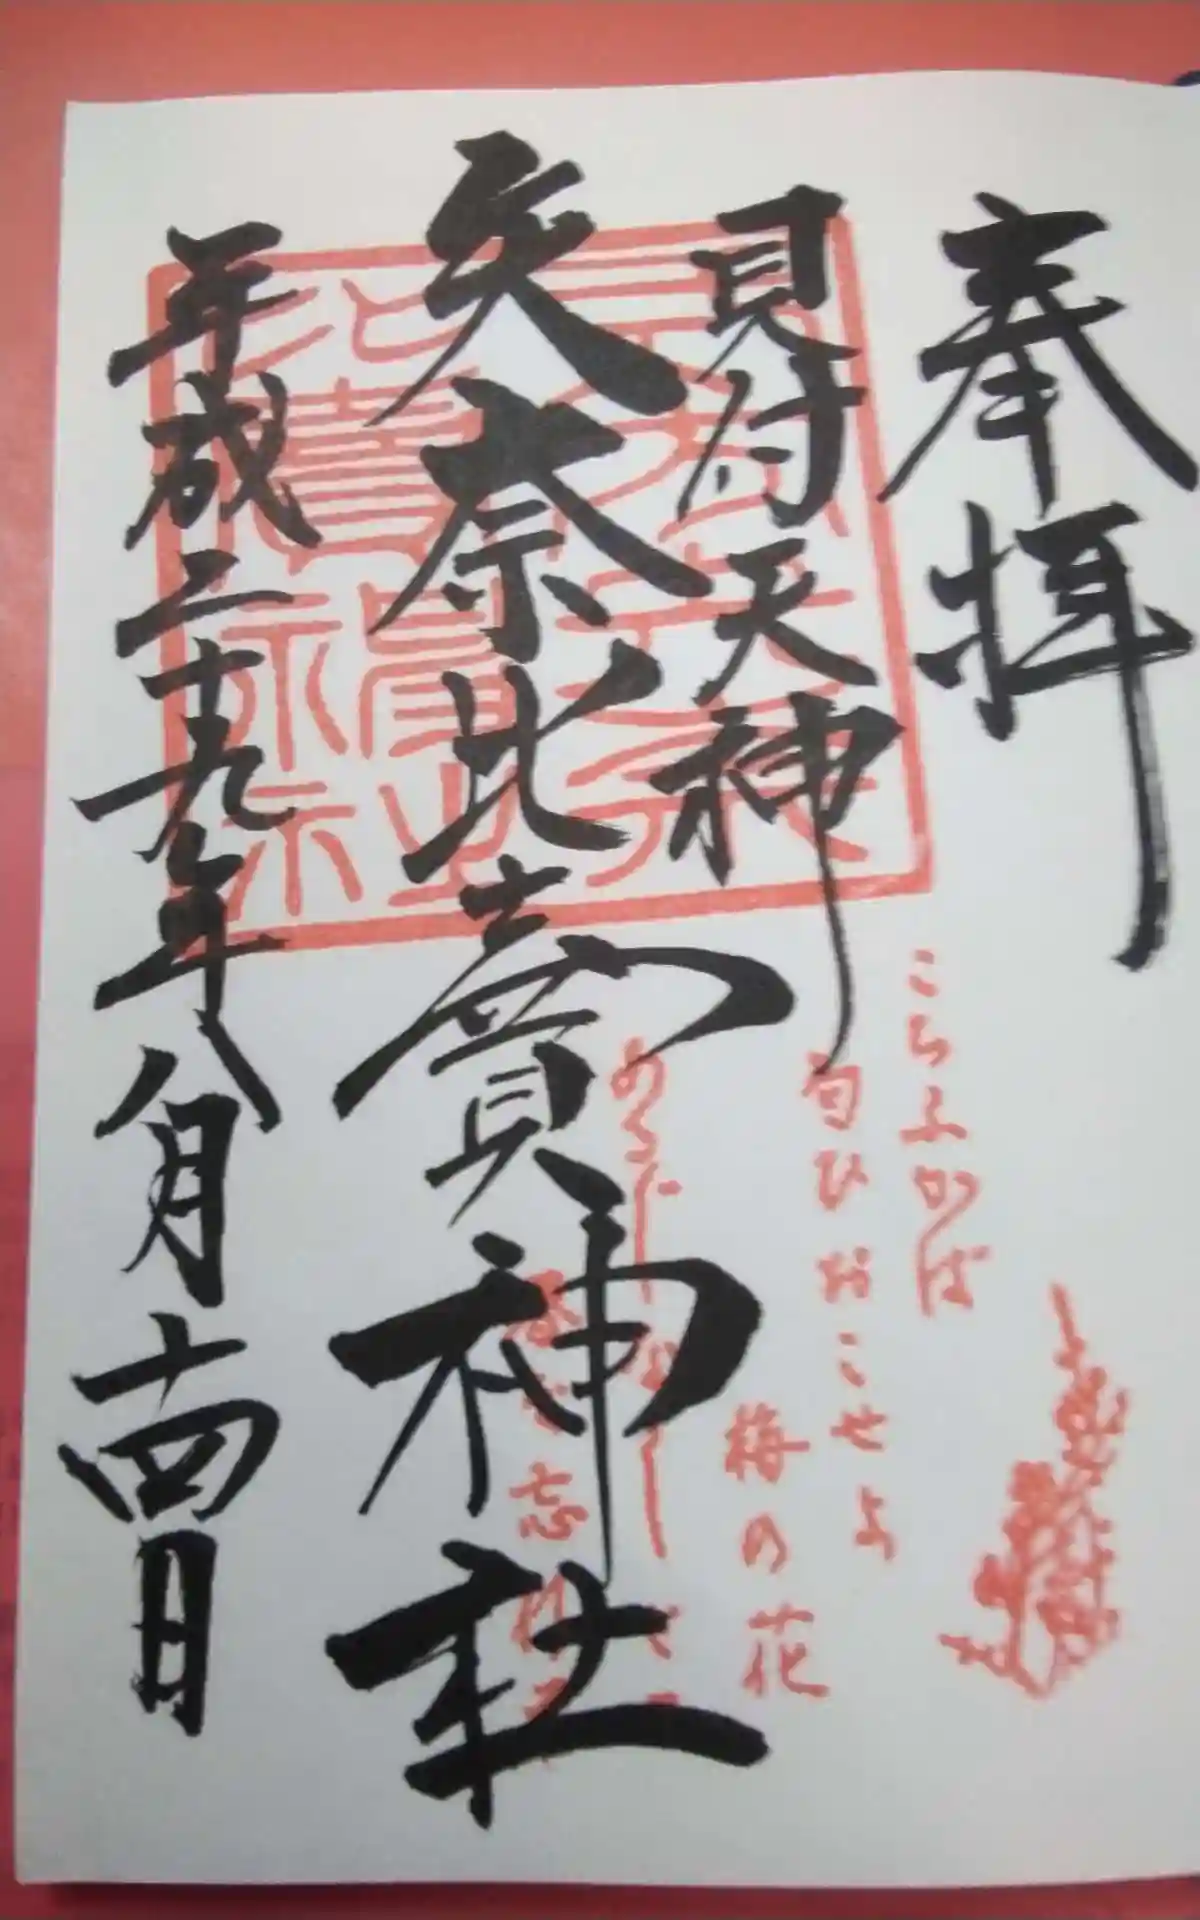 奉拝
見付天神
矢奈比賣神社
平成二十九年八月十四日
こちふかば
匂ひおこせよ
梅の花
あるじなしとて
春な忘れそ